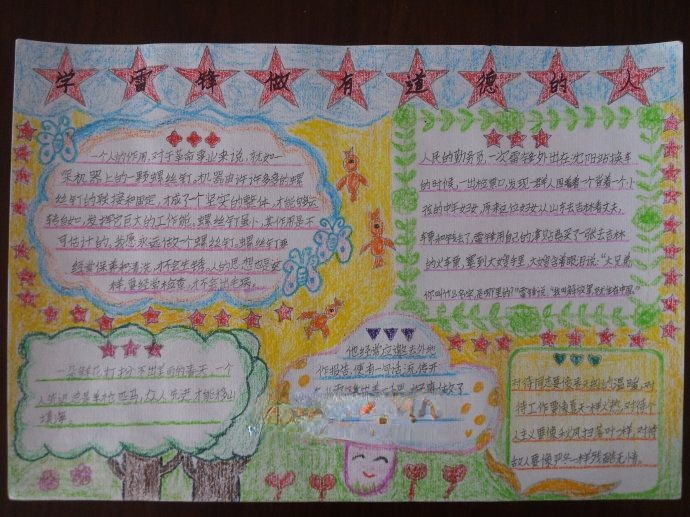 学雷锋做有道德的人
一个人的作用，对于革命事业来说，就如一
架机器上的一颗螺丝钉。机器由许许多多的螺
丝钉的联接和固定，才成了一个坚实的整体，才能够运
转自如，发挥它巨大的工作能。螺丝钉虽小，其作用是不
可估计的。我愿永远做一个螺丝钉。螺丝钉要
经常保养和清洗，才不会生锈。人的思想也是这
样，要经常检查，才不会出毛病。
人民的勤务员，一次雷锋外出在沈阳站换车
的时候，一出检票口，发现一群人围着一个背着一个小
孩的中年妇女，原来这位妇女从山东去吉林看丈夫，
车票和钱丢了，雷锋用自己的津贴费买了一张去吉林
的火车票，塞到大嫂手里，大嫂含着眼泪说：“大兄弟
你叫什么名字，是哪里的？”雷锋说：“我叫解放军，就住在中国。”
一朵鲜花打扮不出美丽的春天，一个
人先进总是单枪匹马，众人先进才能移山
填海。
他经常应邀去外地
作报告，便有一句话流传开
对待同志要像春天般的温暖，对
待工作要像夏天一样火热，对待个
人主义要像秋风扫落叶一样，对待
敌人要像严冬一样残酷无情。